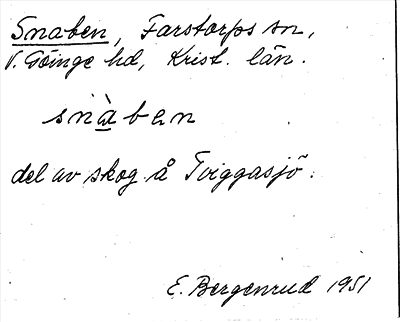 Snaben, Farstorps sn,
V. Göinge hd, Krist. län.
snàben
del av skog å Tviggasjö.
E. Bergenrud 1951